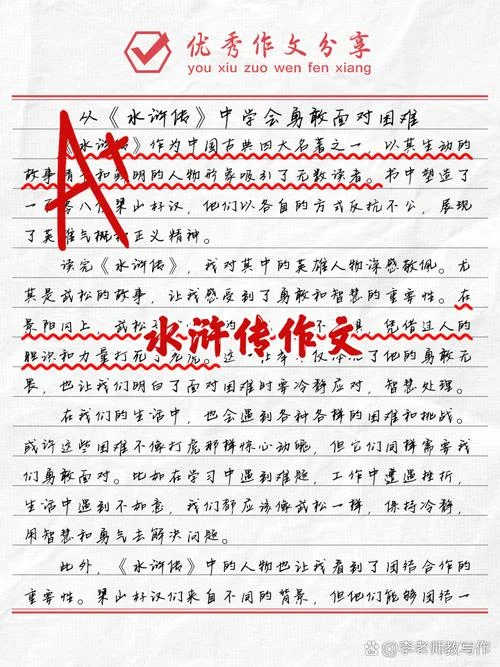 优秀作文分享
you xiu zuo wen fen xiang
从《水浒传》中学会勇敢面对困难
A+
《水浒传》作为中国古典四大名著之一，以其生动的
故事情节和鲜明的人物形象吸引了无数读者。书中塑造了
一百零八位梁山好汉，他们以各自的方式反抗不公，展现
了英雄气概和正义精神。
读完《水浒传》，我对其中的英雄人物深感敬佩。尤
其是武松的故事，让我感受到了勇敢和智慧的重要性。在
景阳冈上，武松 不 ，凭借过人的
水浒传作文
胆识和力量打死了老虎。这一 不仅体现了他的勇敢无
畏，也让我们明白了面对困难时要冷静应对，智慧处理。
在我们的生活中，也会遇到各种各样的困难和挑战。
或许这些困难不像打虎那样惊心动魄，但它们同样需要我
们勇敢面对。比如在学习中遇到难题，工作中遭遇挫折，
生活中遇到不如意，我们都应该像武松一样，保持冷静，
用智慧和勇气去解决问题。
此外，《水浒传》中的人物也让我看到了团结合作的
重要性。梁山好汉们来自不同的背景，但他们能够团结一
李老师教写作